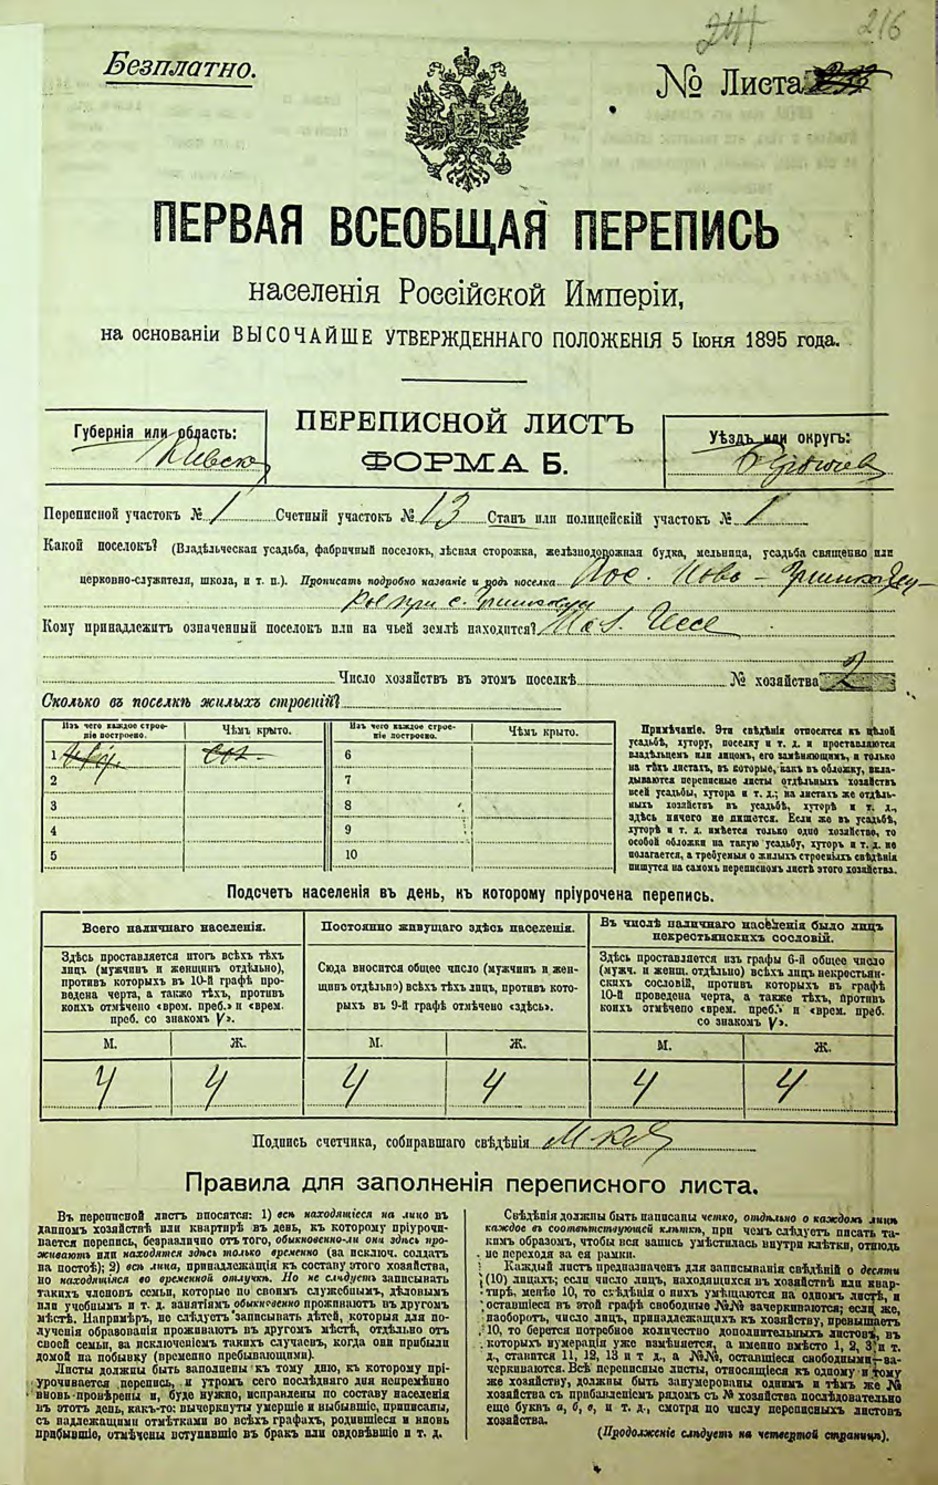 216
Безплатно.
№ Листа
ПЕРВАЯ ВСЕОБЩАЯ ПЕРЕПИСЬ
населенія Россійской Имперіи,
на основаніи ВЫСОЧАЙШЕ УТВЕРЖДЕННАГО ПОЛОЖЕНІЯ 5 Іюня 1895 года.
ПЕРЕПИСНОЙ ЛИСТЪ
ФОРМА Б.
Губернія или область:
Кіевская
Уѣздъ или округъ:
Бердичев
Переписной участокъ № 1 Счетный участокъ № 13 Станъ или полицейскій участокъ № 1
Какой поселокъ? (Владѣльческая усадьба, фабричный поселокъ, лѣсная сторожка, желѣзнодорожная будка, мельница, усадьба священно или
церковно-служителя, школа, и т. п.). Прописать подробно названіе и родъ поселка Пос. Ново-
при с.
Кому принадлежитъ означенный поселокъ или на чьей землѣ находится?
Число хозяйствъ въ этомъ поселкѣ № хозяйства 2
Сколько въ поселкѣ жилыхъ строеній?
Изъ чего каждое строеніе построено.
Чѣмъ крыто.
Изъ чего каждое строеніе построено.
Чѣмъ крыто.
1 6
2 7
3 8
4 9
5 10
Примѣчаніе. Эти свѣдѣнія относятся къ цѣлой
усадьбѣ, хутору, поселку и т. д. и проставляются
владѣльцемъ или лицомъ, его замѣняющимъ, и только
на тѣхъ листахъ, въ которые, какъ въ обложку, вкла-
дываются переписные листы отдѣльныхъ хозяйствъ
всей усадьбы, хутора и т. д.; на листахъ же отдѣль-
ныхъ хозяйствъ въ усадьбѣ, хуторѣ и т. д.,
здѣсь ничего не пишется. Если же въ усадьбѣ,
хуторѣ и т. д. имѣется только одно хозяйство, то
особой обложки на такую усадьбу, хуторъ и т. д. не
полагается, а требуемыя о жилыхъ строеніяхъ свѣдѣнія
пишутся на самомъ переписномъ листѣ этого хозяйства.
Подсчетъ населенія въ день, къ которому пріурочена перепись.
Всего наличнаго населенія.
Здѣсь проставляется итогъ всѣхъ тѣхъ
лицъ (мужчинъ и женщинъ отдѣльно),
противъ которыхъ въ 10-й графѣ про-
ведена черта, а также тѣхъ, противъ
коихъ отмѣчено «врем. преб.» и «врем.
преб. со знакомъ V».
Постоянно живущаго здѣсь населенія.
Сюда вносится общее число (мужчинъ и жен-
щинъ отдѣльно) всѣхъ тѣхъ лицъ, противъ кото-
рыхъ въ 9-й графѣ отмѣчено «здѣсь».
Въ числѣ наличнаго населенія было лицъ
некрестьянскихъ сословій.
Здѣсь проставляется изъ графы 6-й общее число
(мужч. и женщ. отдѣльно) всѣхъ лицъ некрестьян-
скихъ сословій, противъ которыхъ въ графѣ
10-й проведена черта, а также тѣхъ, противъ
коихъ отмѣчено «врем. преб.» и «врем. преб.
со знакомъ V».
М. Ж. М. Ж. М. Ж.
4 4 4 4 4 4
Подпись счетчика, собиравшаго свѣдѣнія
Правила для заполненія переписного листа.
Въ переписной листъ вносятся: 1) всѣ находящіеся на лицо въ
данномъ хозяйствѣ или квартирѣ въ день, къ которому пріурочи-
вается перепись, безразлично отъ того, обыкновенно-ли они здѣсь про-
живаютъ или находятся здѣсь только временно (за исключ. солдатъ
на постоѣ); 2) всѣ лица, принадлежащія къ составу этого хозяйства,
но находящіяся во временной отлучкѣ. Но не слѣдуетъ записывать
такихъ членовъ семьи, которые по своимъ служебнымъ, дѣловымъ
или учебнымъ и т. д. занятіямъ обыкновенно проживаютъ въ другомъ
мѣстѣ. Напримѣръ, не слѣдуетъ записывать дѣтей, которыя для по-
лученія образованія проживаютъ въ другомъ мѣстѣ, отдѣльно отъ
своей семьи, за исключеніемъ такихъ случаевъ, когда они прибыли
домой на побывку (временно пребывающими).
Листы должны быть заполнены къ тому дню, къ которому прі-
урочивается перепись, и утромъ сего послѣдняго дня непремѣнно
вновь провѣрены и, буде нужно, исправлены по составу населенія
въ этотъ день, какъ-то: вычеркнуты умершіе и выбывшіе, приписаны,
съ надлежащими отмѣтками во всѣхъ графахъ, родившіеся и вновь
прибывшіе, отмѣчены вступившіе въ бракъ или овдовѣвшіе и т. д.
Свѣдѣнія должны быть написаны четко, отдѣльно о каждомъ лицѣ
каждое въ соотвѣтствующей клѣткѣ, при чемъ слѣдуетъ писать та-
кимъ образомъ, чтобы вся запись умѣстилась внутри клѣтки, отнюдь
не переходя за ея рамки.
Каждый листъ предназначенъ для записыванія свѣдѣній о десяти
(10) лицахъ; если число лицъ, находящихся въ хозяйствѣ или квар-
тирѣ, менѣе 10, то свѣдѣнія о нихъ умѣщаются на одномъ листѣ, и
оставшіеся въ этой графѣ свободные №№ зачеркиваются; если же,
наоборотъ, число лицъ, принадлежащихъ къ хозяйству, превышаетъ
10, то берется потребное количество дополнительныхъ листовъ, въ
которыхъ нумерація уже измѣняется, а именно вмѣсто 1, 2, 3 и т.
д., ставится 11, 12, 13 и т д., а №№, оставшіеся свободными—за-
черкиваются. Всѣ переписные листы, относящіеся къ одному и тому
же хозяйству, должны быть занумерованы однимъ и тѣмъ же №
хозяйства съ прибавленіемъ рядомъ съ № хозяйства послѣдовательно
еще буквъ а, б, в, и т. д., смотря по числу переписныхъ листовъ
хозяйства.
(Продолженіе слѣдуетъ на четвертой страницѣ).